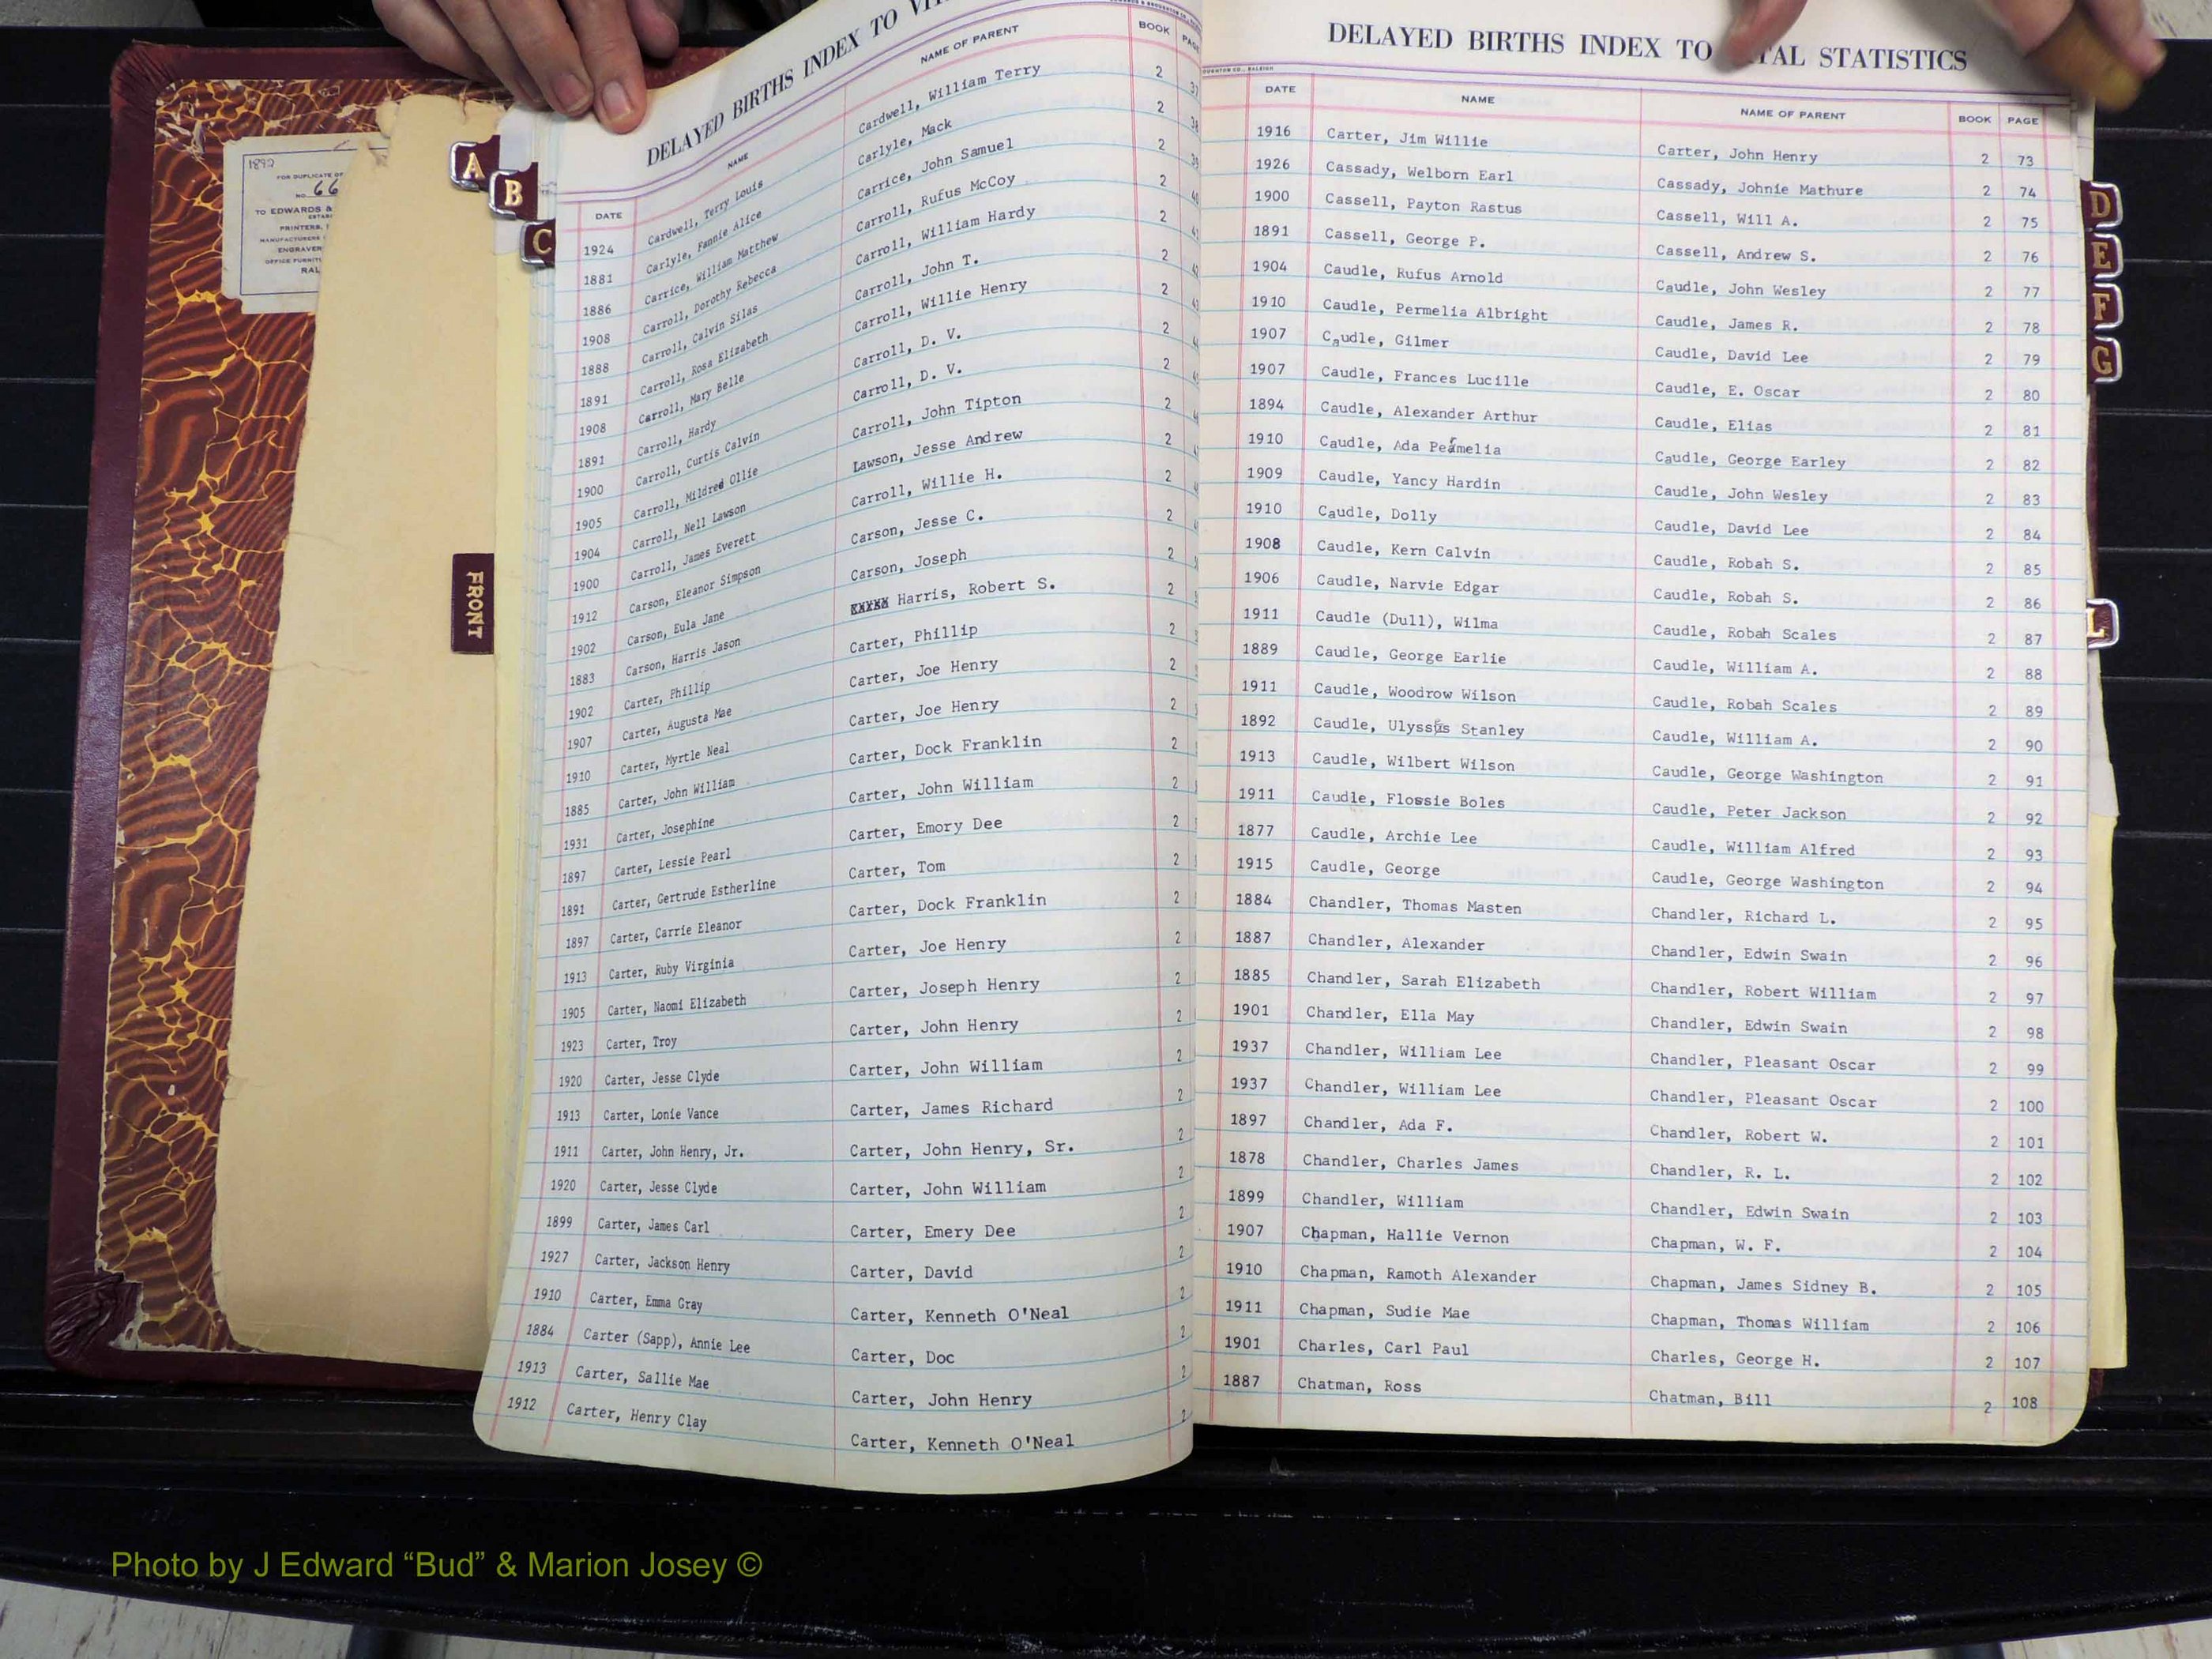 1892
FOR DUPLICATE OF
NO. 66
TO EDWARDS &
PRINTERS,
MANUFACTURERS
ENGRAVER
OFFICE FURNITU
RAL
A
B
C
FRONT
DELAYED BIRTHS INDEX TO
DATE NAME NAME OF PARENT BOOK PAGE
1924 Cardwell, Terry Louis Cardwell, William Terry 2 37
1881 Carlyle, Fannie Alice Carlyle, Mack 2 38
1886 Carrice, William Matthew Carrice, John Samuel 2 39
1908 Carroll, Dorothy Rebecca Carroll, Rufus McCoy 2 40
1888 Carroll, Calvin Silas Carroll, William Hardy 2 41
1891 Carroll, Rosa Elizabeth Carroll, John T. 2 42
1908 Carroll, Mary Belle Carroll, Willie Henry 2 43
1891 Carroll, Hardy Carroll, D. V. 2
1900 Carroll, Curtis Calvin Carroll, D. V. 2
1905 Carroll, Mildred Ollie Carroll, John Tipton 2
1904 Carroll, Nell Lawson Lawson, Jesse Andrew 2
1900 Carroll, James Everett Carroll, Willie H. 2
1912 Carson, Eleanor Simpson Carson, Jesse C. 2
1902 Carson, Eula Jane Carson, Joseph 2
1883 Carson, Harris Jason Harris, Robert S. 2
1902 Carter, Phillip Carter, Phillip 2
1907 Carter, Augusta Mae Carter, Joe Henry 2
1910 Carter, Myrtle Neal Carter, Joe Henry 2
1885 Carter, John William Carter, Dock Franklin 2
1931 Carter, Josephine Carter, John William 2
1897 Carter, Lessie Pearl Carter, Emory Dee 2
1891 Carter, Gertrude Estherline Carter, Tom 2
1897 Carter, Carrie Eleanor Carter, Dock Franklin 2
1913 Carter, Ruby Virginia Carter, Joe Henry 2
1905 Carter, Naomi Elizabeth Carter, Joseph Henry 2
1923 Carter, Troy Carter, John Henry 2
1920 Carter, Jesse Clyde Carter, John William 2
1913 Carter, Lonie Vance Carter, James Richard 2
1911 Carter, John Henry, Jr. Carter, John Henry, Sr. 2
1920 Carter, Jesse Clyde Carter, John William 2
1899 Carter, James Carl Carter, Emery Dee 2
1927 Carter, Jackson Henry Carter, David 2
1910 Carter, Emma Gray Carter, Kenneth O'Neal 2
1884 Carter (Sapp), Annie Lee Carter, Doc 2
1913 Carter, Sallie Mae Carter, John Henry 2
1912 Carter, Henry Clay Carter, Kenneth O'Neal 2
DELAYED BIRTHS INDEX TO TAL STATISTICS
DATE NAME NAME OF PARENT BOOK PAGE
1916 Carter, Jim Willie Carter, John Henry 2 73
1926 Cassady, Welborn Earl Cassady, Johnie Mathure 2 74
1900 Cassell, Payton Rastus Cassell, Will A. 2 75
1891 Cassell, George P. Cassell, Andrew S. 2 76
1904 Caudle, Rufus Arnold Caudle, John Wesley 2 77
1910 Caudle, Permelia Albright Caudle, James R. 2 78
1907 Caudle, Gilmer Caudle, David Lee 2 79
1907 Caudle, Frances Lucille Caudle, E. Oscar 2 80
1894 Caudle, Alexander Arthur Caudle, Elias 2 81
1910 Caudle, Ada Permelia Caudle, George Earley 2 82
1909 Caudle, Yancy Hardin Caudle, John Wesley 2 83
1910 Caudle, Dolly Caudle, David Lee 2 84
1908 Caudle, Kern Calvin Caudle, Robah S. 2 85
1906 Caudle, Narvie Edgar Caudle, Robah S. 2 86
1911 Caudle (Dull), Wilma Caudle, Robah Scales 2 87
1889 Caudle, George Earlie Caudle, William A. 2 88
1911 Caudle, Woodrow Wilson Caudle, Robah Scales 2 89
1892 Caudle, Ulysses Stanley Caudle, William A. 2 90
1913 Caudle, Wilbert Wilson Caudle, George Washington 2 91
1911 Caudle, Flossie Boles Caudle, Peter Jackson 2 92
1877 Caudle, Archie Lee Caudle, William Alfred 2 93
1915 Caudle, George Caudle, George Washington 2 94
1884 Chandler, Thomas Masten Chandler, Richard L. 2 95
1887 Chandler, Alexander Chandler, Edwin Swain 2 96
1885 Chandler, Sarah Elizabeth Chandler, Robert William 2 97
1901 Chandler, Ella May Chandler, Edwin Swain 2 98
1937 Chandler, William Lee Chandler, Pleasant Oscar 2 99
1937 Chandler, William Lee Chandler, Pleasant Oscar 2 100
1897 Chandler, Ada F. Chandler, Robert W. 2 101
1878 Chandler, Charles James Chandler, R. L. 2 102
1899 Chandler, William Chandler, Edwin Swain 2 103
1907 Chapman, Hallie Vernon Chapman, W. F. 2 104
1910 Chapman, Ramoth Alexander Chapman, James Sidney B. 2 105
1911 Chapman, Sudie Mae Chapman, Thomas William 2 106
1901 Charles, Carl Paul Charles, George H. 2 107
1887 Chatman, Ross Chatman, Bill 2 108
D
E
F
G
L
Photo by J Edward “Bud” & Marion Josey ©